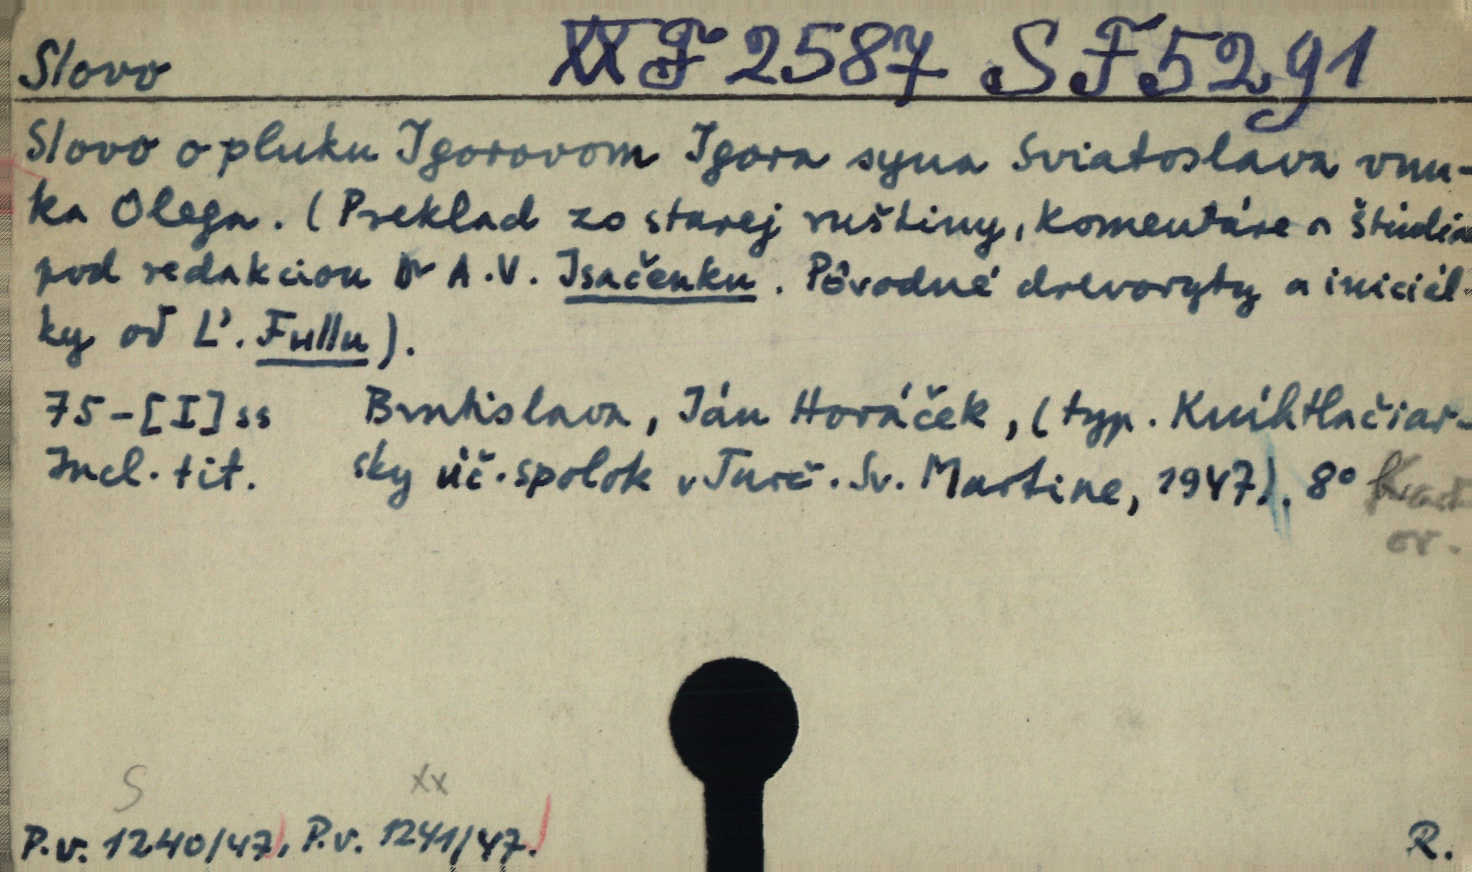 Slovo XX F 2587 SF 5291
Slovo o pluku Igorovom Igora syna Sviatoslava vnu-
ka Olega. (Preklad zo starej ruštiny, komentáre a štúdie
pod redakciou Dr A.V. Isačenku. Pôvodné drevoryty a iniciál-
ky od Ľ. Fullu).
75-[I] ss Bratislava, Ján Horáček, (typ. Kníhtlačiar-
Incl. tit. sky úč. spolok v Turč. Sv. Martine, 1947). 8°
S xx
P.v. 1240/47, P.v. 1241/47. R.